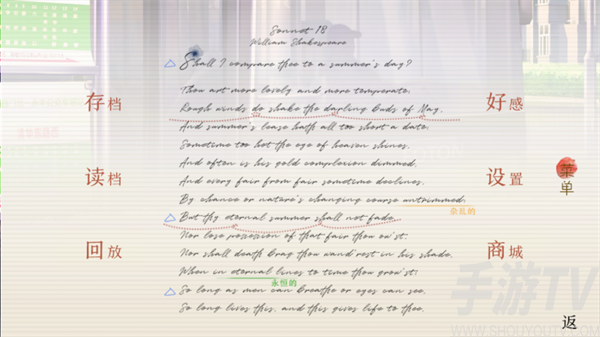 Sonnet 18
William Shakespeare
Shall I compare thee to a summer's day?
Thou art more lovely and more temperate.
Rough winds do shake the darling buds of May,
And summer's lease hath all too short a date.
Sometime too hot the eye of heaven shines,
And often is his gold complexion dimmed,
And every fair from fair sometime declines,
By chance or nature's changing course untrimmed.
杂乱的
But thy eternal summer shall not fade,
Nor lose possession of that fair thou ow'st.
Nor shall death brag thou wand'rest in his shade,
When in eternal lines to time thou grow'st:
永恒的
So long as men can breathe or eyes can see,
So long lives this, and this gives life to thee.
存档
读档
回放
好感
设置
商城
菜单
返
手游TV
WWW.SHOUYOUTV.COM